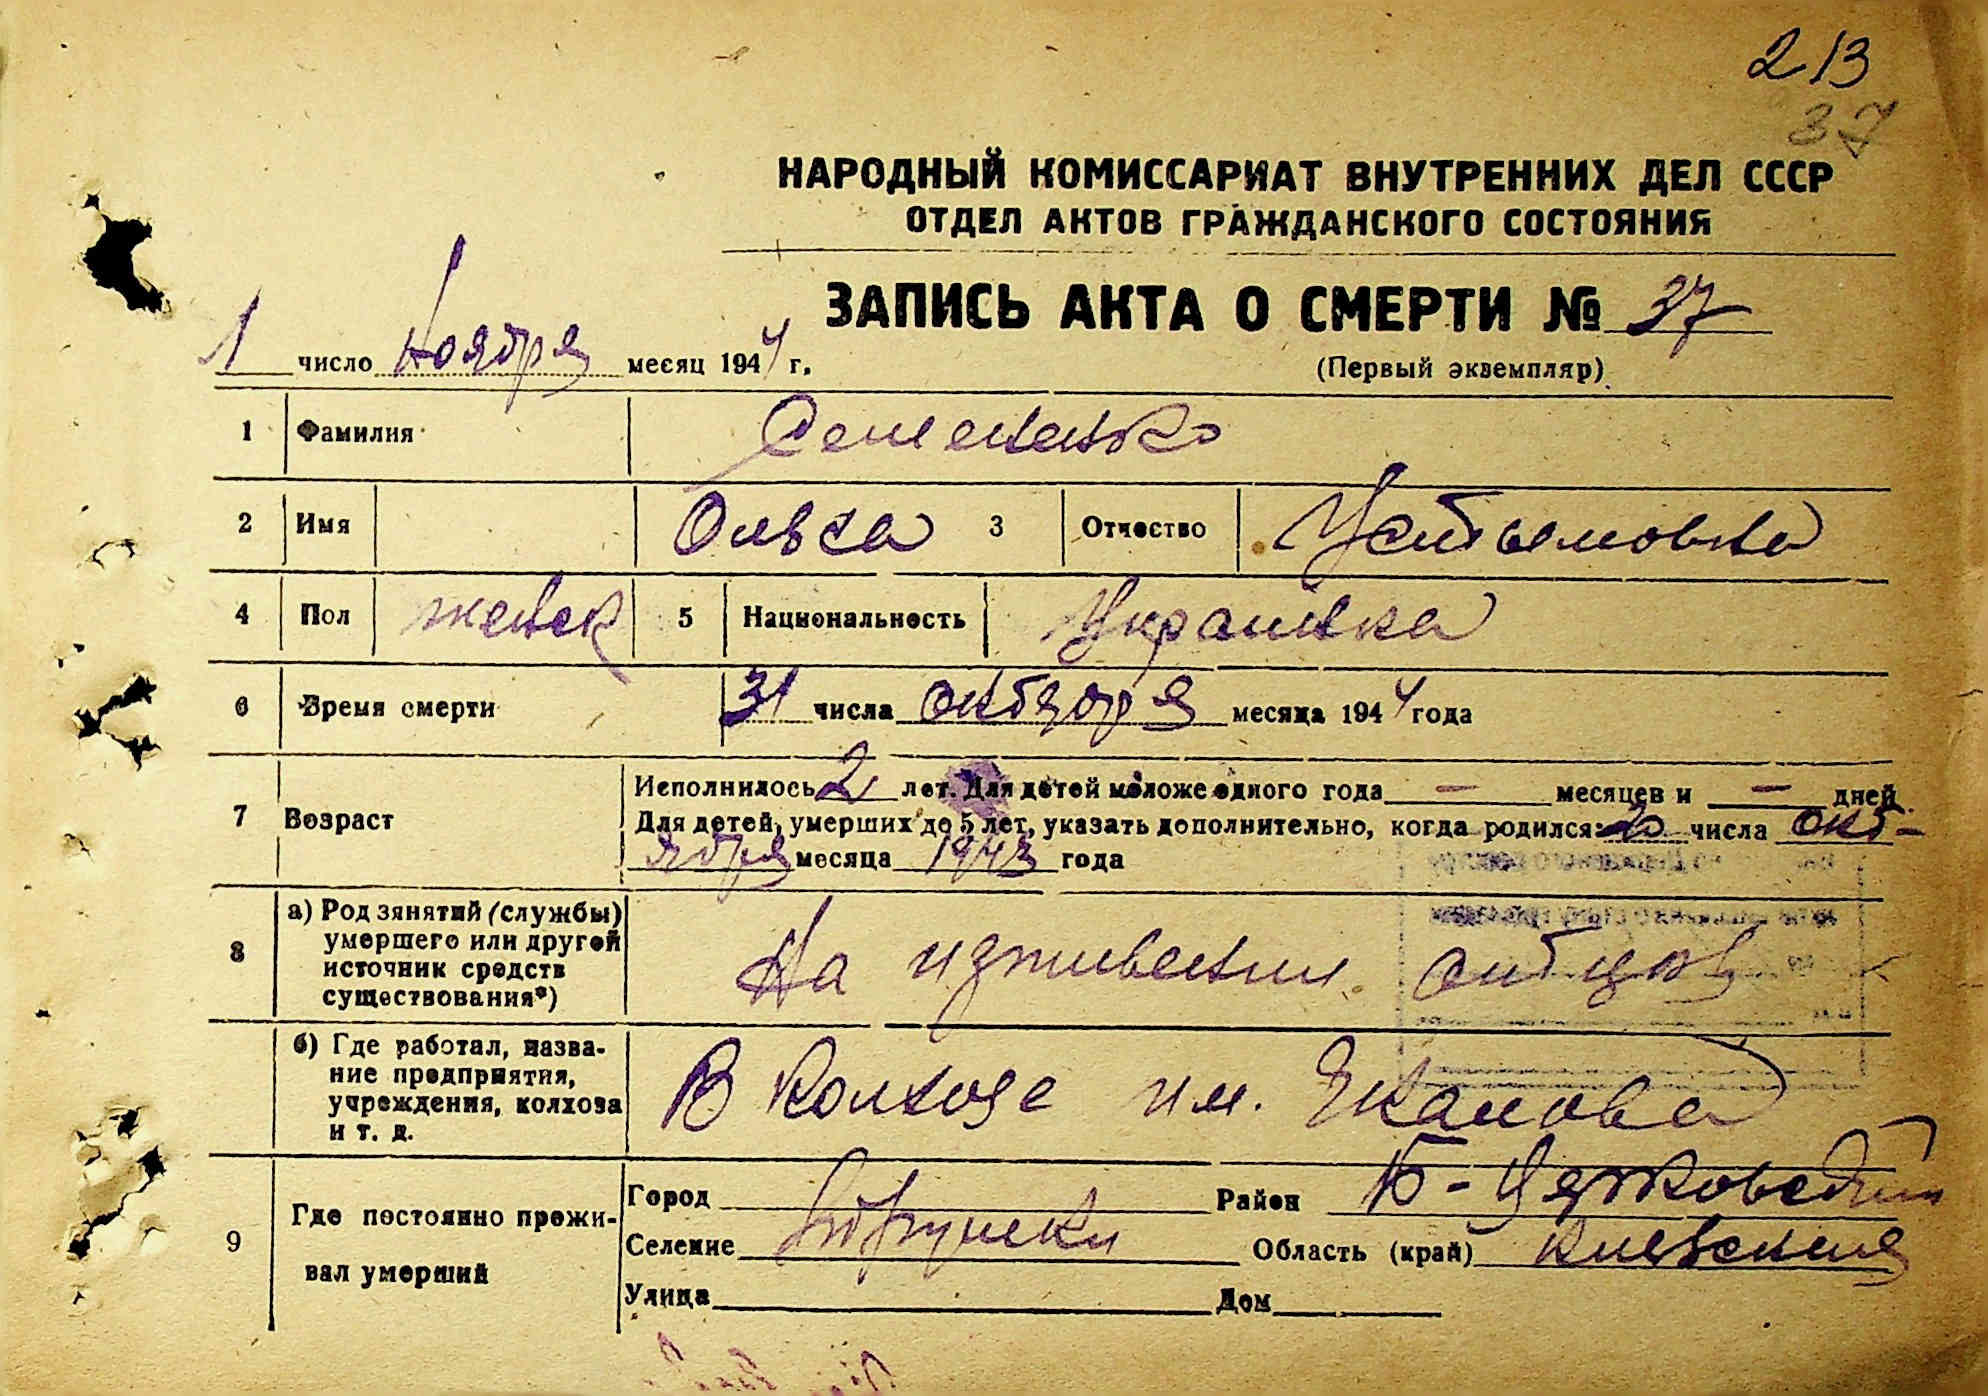 213
37
НАРОДНЫЙ КОМИССАРИАТ ВНУТРЕННИХ ДЕЛ СССР
ОТДЕЛ АКТОВ ГРАЖДАНСКОГО СОСТОЯНИЯ
ЗАПИСЬ АКТА О СМЕРТИ № 37
1 число Ноября месяц 1944 г.
(Первый экземпляр)
1 Фамилия Семененко
2 Имя Ольга 3 Отчество Устымовна
4 Пол женск 5 Национальность Украинка
6 Время смерти 31 числа октября месяца 1944 года
7 Возраст Исполнилось 2 лет. Для детей моложе одного года — месяцев и — дней.
Для детей, умерших до 5 лет, указать дополнительно, когда родился: 20 числа окт-
ября месяца 1943 года
8 а) Род занятий (службы) умершего или другой источник средств существования*) На иждивении отцов
б) Где работал, назва-
ние предприятия,
учреждения, колхоза
и т. д. В Колхозе им. Чкалова
9 Где постоянно прожи-
вал умерший
Город Район Б-Церковский
Селение Область (край) Киевская
Улица Дом